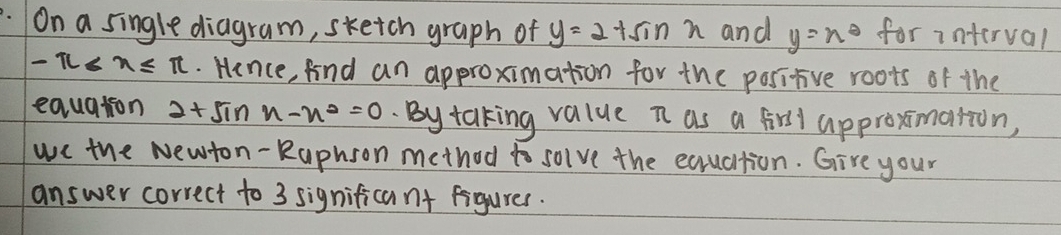 . On a single diagram, sketch graph of y = 2 + sin x and y = x² for interval
-π ≤ x ≤ π. Hence, find an approximation for the positive roots of the
equation 2 + sin x - x² = 0. By taking value π as a first approximation,
use the Newton-Raphson method to solve the equation. Give your
answer correct to 3 significant figures.